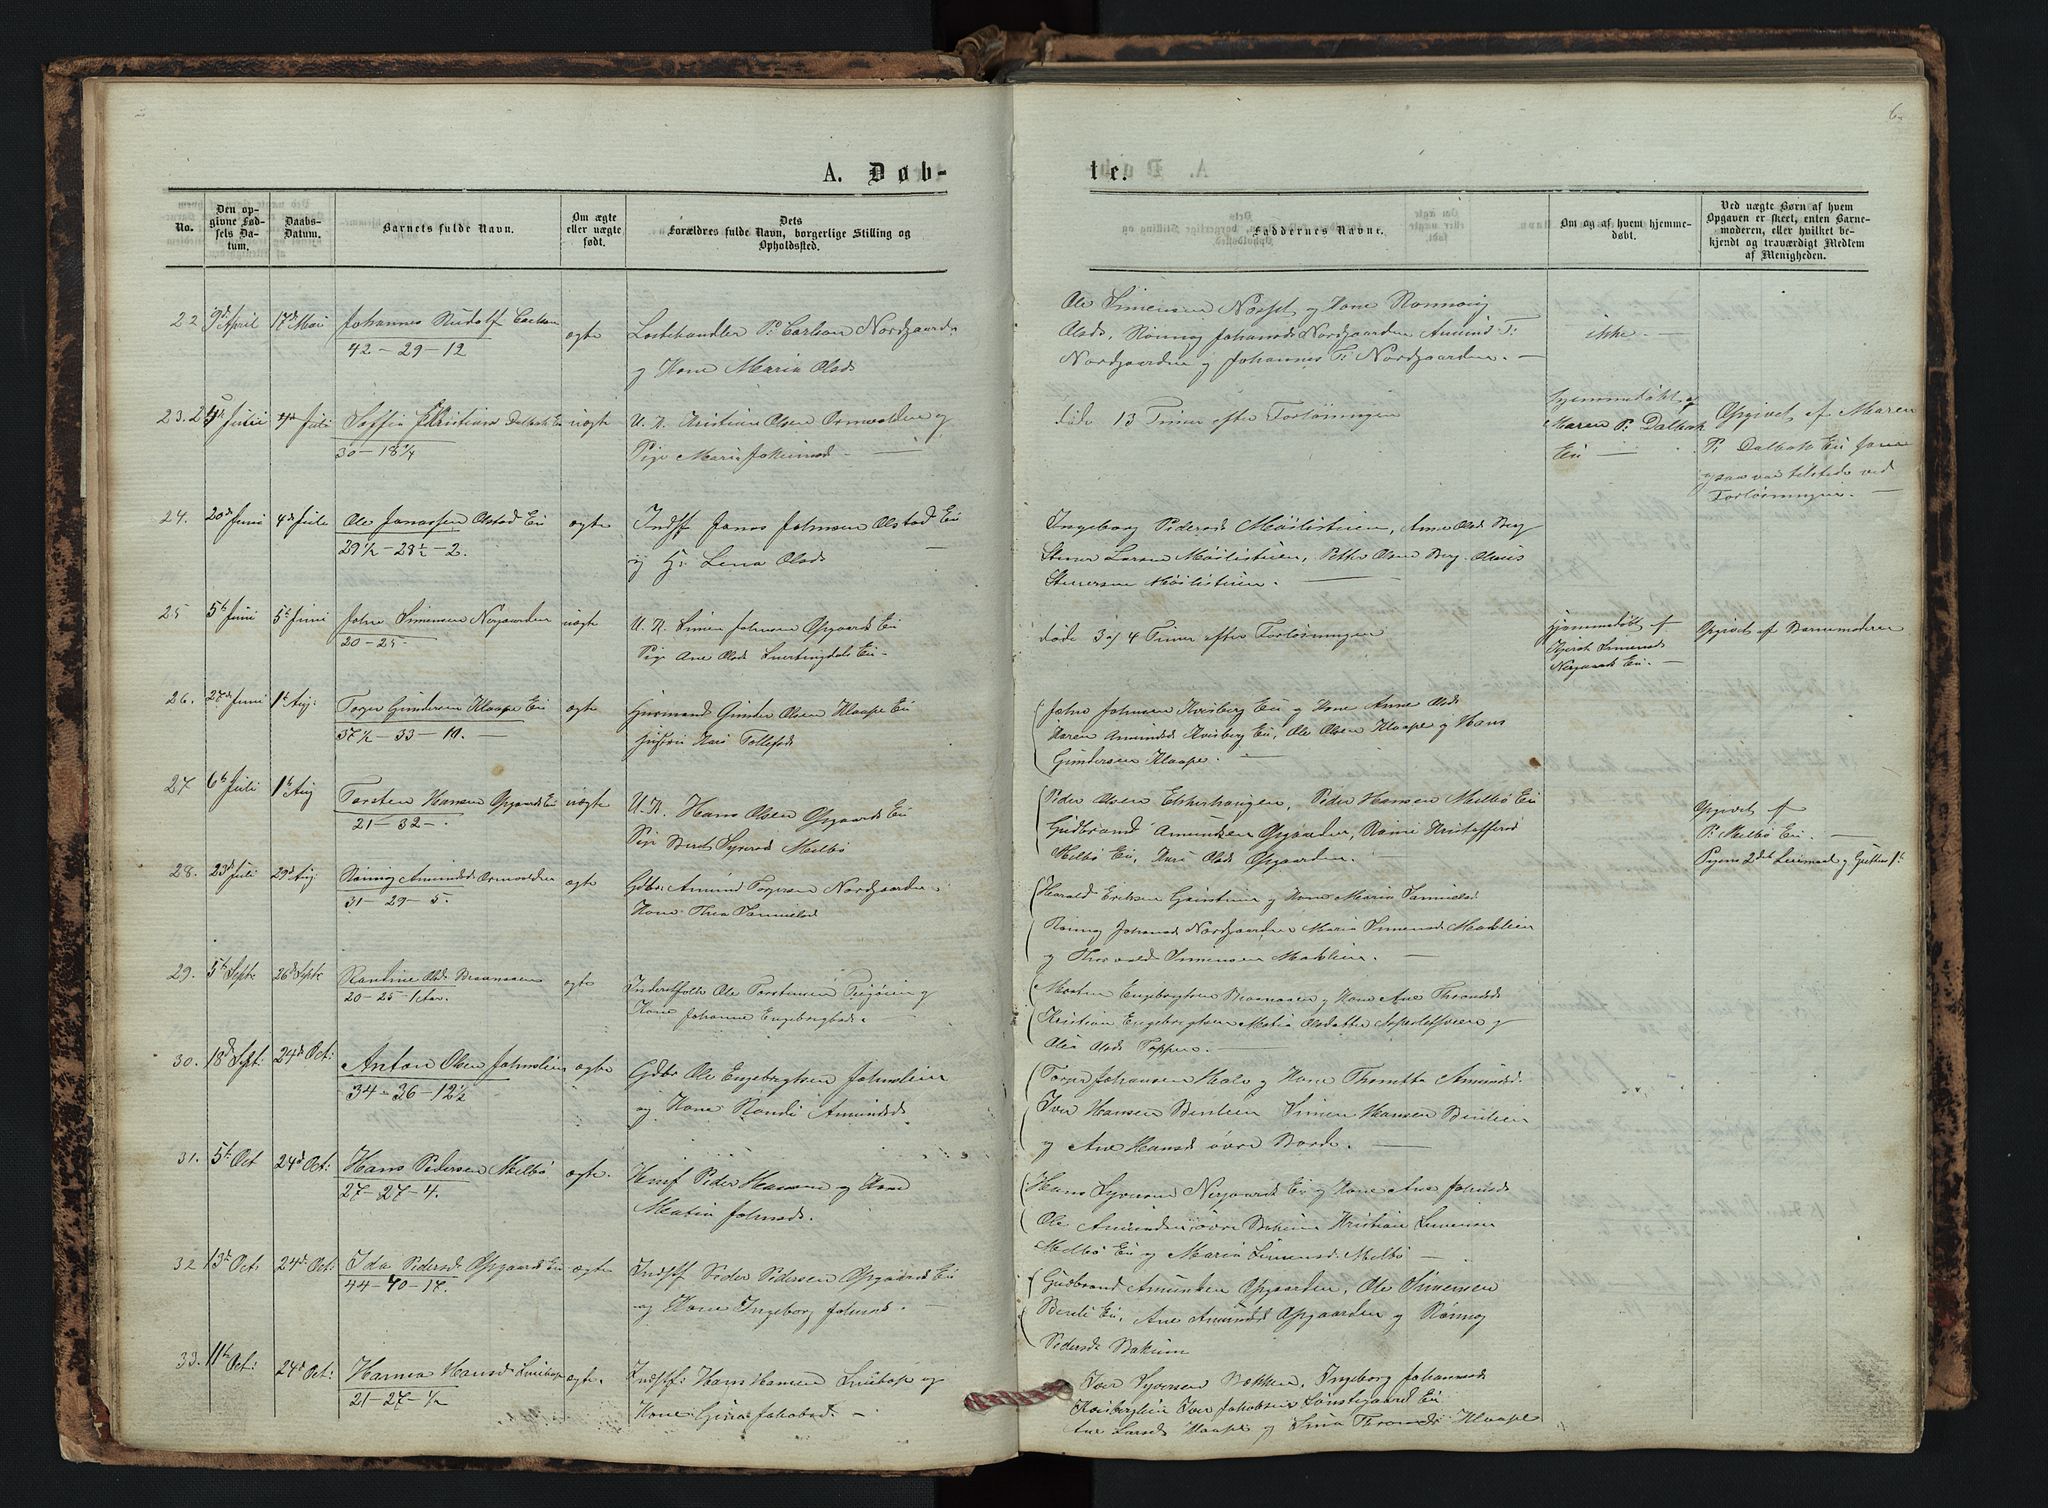 6.
A. Døb-
te.
No.
Den op-
givne Fød-
sels Da-
tum.
Daabs-
Datum.
Barnets fulde Navn.
Om ægte
eller uægte
født.
Dets
Forældres fulde Navn, borgerlige Stilling og
Opholdssted.
Faddernes Navne.
Om og af hvem hjemme-
døbt.
Ved uægte Børn af hvem
Opgaven er skeet, enten Barne-
moderen, eller hvilket be-
kjendt og troværdigt Medlem
af Menigheden.
22 9d April 17d Mai Johannes Rudolf Carlsen ægte
42 - 29 - 12
P. Carlson Nordgaarden
og Kone Maria Olsd
Ole Simensen og Kone Rønnoug
Olsd. Rønnog Johansd Nordgaarden Amund T:
Nordgaarden og Johannes T: Nordgaarden. —
ikke —
23. Juli Juli Soffia Kristians Dalbak Ei uægte
30 - 18 1/4
U. K. Kristian Olsen Ormvolden og
Pige Maria
døde 13 Timer efter Forløsningen
hjemmedøbt af
Maren P: Dalbak
Ei —
Opgivet af Maren
P: Dalbak Ei
var tilstede ved
Forløsningen. —
24. 20d Juni 4d Juli Ole Janassen Olstad Ei ægte
29 1/2 - 28 1/2 - 2.
Indst Jonas Johnsen Olstad Ei
og H: Lena Olsd
Ingeborg Pedersd Møilistuen, Ane Olsd Berg
Stener Larsen Møilistuen, Petter Olsen Berg. Olaus
Stenersen Møilistuen. —
25 5t Juni 5t Juni John Simensen Nergaarden uægte
20 - 25 -
U. K. Simen Johnsen Opgaards Ei
Pige Ane Olsd Ei -
døde 3 a 4 Timer efter Forløsningen
Hjemmedøbt af
Simensd
Nergaards Ei. —
Opgivet af Barnemoderen
26. 27d Juni 1t Aug: Torger Gundersen Klaape Ei ægte
37 1/2 - 33 - 10. —
Huusmand Gunder Olsen Klaape Ei
Hustru Kari Tollefsd
John Johnsen Kvisberg Ei og Kone Anne Olsd
Karen Amundsd Kvisberg Ei, Ole Olsen Klaape og Hans
Gundersen Klaape. —
27 6t Juli 1t Aug Torsten Hansen Opgaards Ei uægte
21 - 32 - .
U. K. Hans Olsen Opgaards Ei
Pige Beret Syversd Melbø
Peder Olsen Ekkerhaugen, Peder Hansen Melbø Ei
Gudbrand Amundsen Opgaarden, Kristoffersd
Melbø Ei, Kari Olsd Opgaarden.
Opgivet af
P: Melbø Ei. —
Pigens 2det Leiermaal og Gutten 1t
28. 23d Juli 29d Aug: Rønnog Amundsd Ormvolden ægte
31 - 29 - 5.
Gdbr. Amund Torgersen Nordgaarden
Kone Thea Samuelsd
Harald Eriksen og Kone Maria Samuelsd
Rønnog Johansd Nordgaarden Maria Simensd Moshleien
og Thorvald Simensen Mohleien. —
29. 5t Septr 26d Septr Karoline Olsd Braanaasen ægte
20 - 25 - 1 Aar.
Inderstfolk Ole Torstensen og
Kone Johanne Engebregtsd. —
Morten Engebrigtsen Braanaasen og Kone Ane Throndsd
Kristian Engebrigtsen Matia Olsdatter og
Olia Olsd Toppen. —
30. 18d Sept: 24d Oct: Anton Olsen Johnsleien ægte
34 - 36 - 12 1/2
Gdbr Ole Engebrigtsen Johnsleien
og Kone Randi Amundsd
Torger Johansen Holo og Kone Thorette Amundsd.
Iver Hansen Benleien Simen Hansen Benleien
og Ane Hansd øvre Borde. —
31. 5t Oct 24d Oct: Hans Pedersen Melbø ægte.
27 - 27 - 4.
Huusf Peder Hansen og Kone
Matia Johnsd.
Hans Syversen Nergaards Ei og Kone Ane Johnsd
Ole Amundsen øvre Bakum Kristian Simensen
Melbø Ei og Maria Simensd. Melbø —
32 13d Oct: 24d Oct: Ida Pedersd Opgaards Ei ægte
44 - 40 - 17.
Indstf Peder Pedersen Opgaards Ei
og Kone Ingeborg Johnsd. —
Gudbrand Amundsen Opgaarden, Ole Simensen
Benli Ei, Ane Amundsd Opgaarden og Rønnog
Pedersd Bakum
33. 11t Oct: 24d Oct: Hanna Hansd ægte.
21 - 27 - 1/2
Indstf: Hans Hansen og
Kone Gina Jakobsd. —
Iver Syversen Bakken, Ingeborg Johannesd
Kvisberglien Iver Jakobsen Lønstegaard Ei
Ane Larsd Klaape og Sina Thronds Klaape